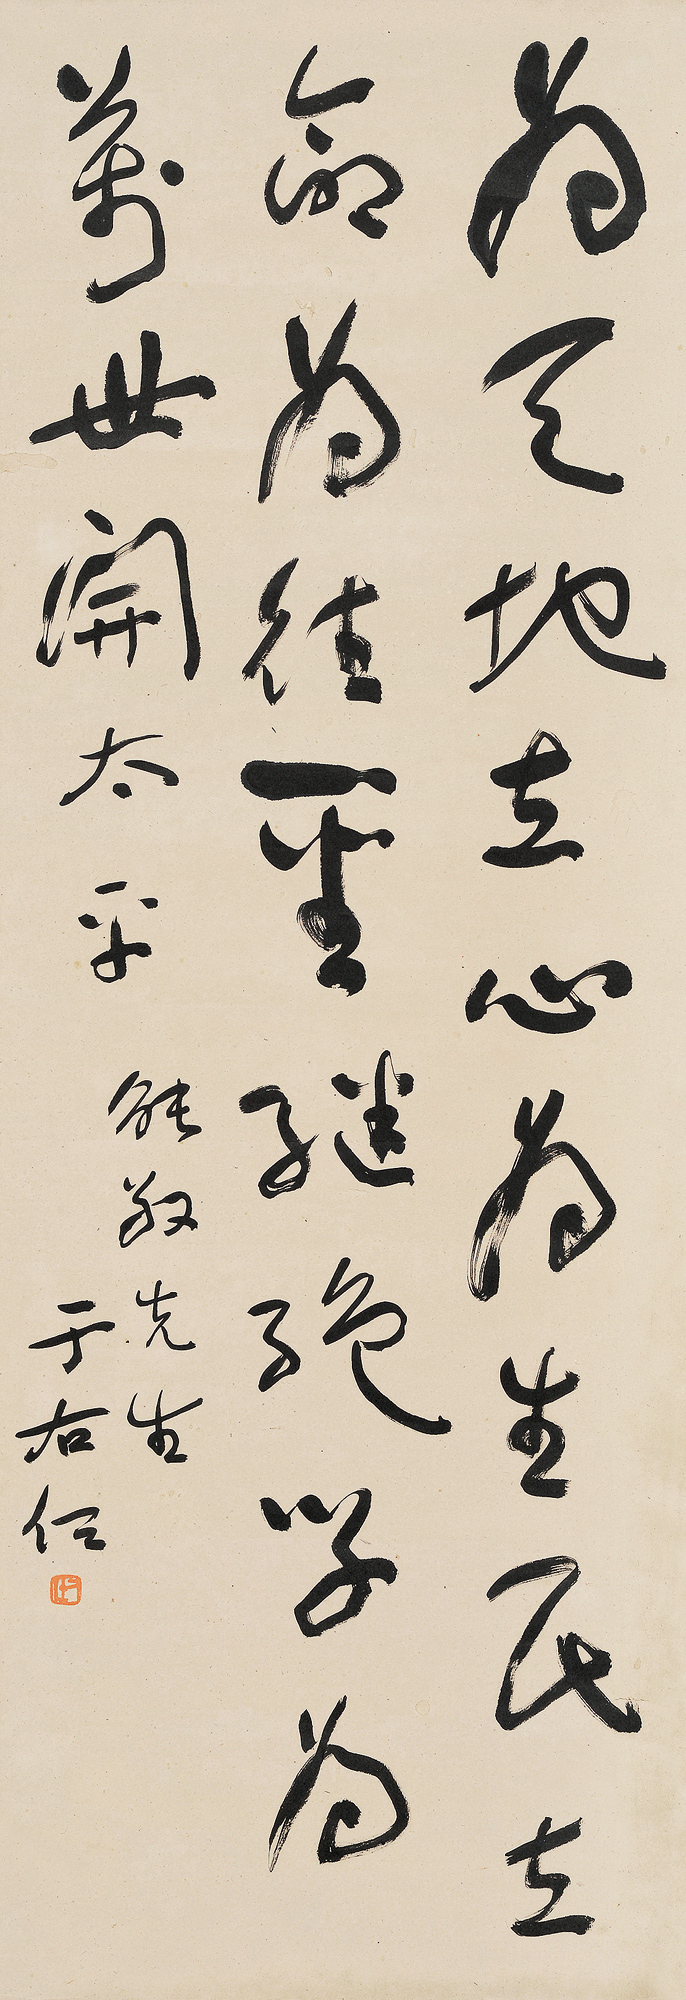 為天地立心為生民立
命為往聖繼絕學為
萬世開太平
能敬先生
于右任